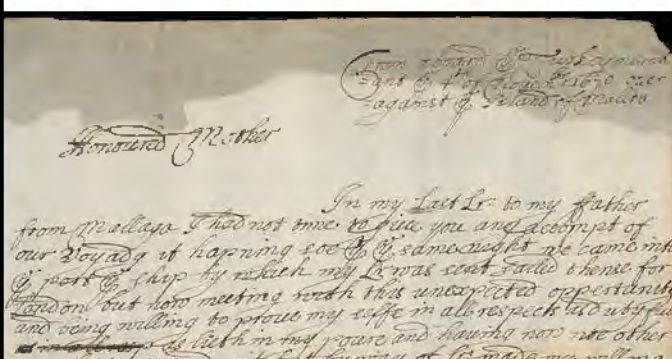 from aboard ye Turkey merch
=ant ye 4th of Novembr 1670 over
=against ye Island of Malita
Honoured Mother
In my Last Lr: to my father
from Mallaga I had not time to give you any accompt of
our Voyadg it hapning soe yt ye same night we came into
ye port ye ship by which my Lr was sent sailed thence for
London but now meeting with this unexpected oppertunite
and being willing to prove my selfe in all respects as dutyfull
as lieth in my poure and having now noe other